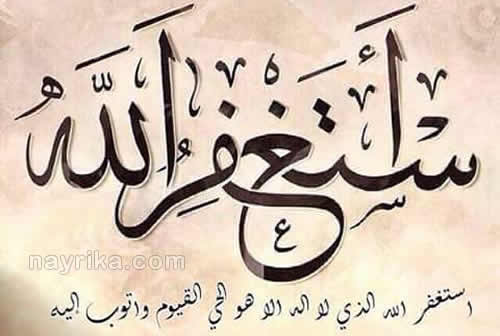 أَستَغفِرُ اللَّهَ
nayrika.com
استغفر الله الذي لا اله الا هو الحي القيوم واتوب إليه